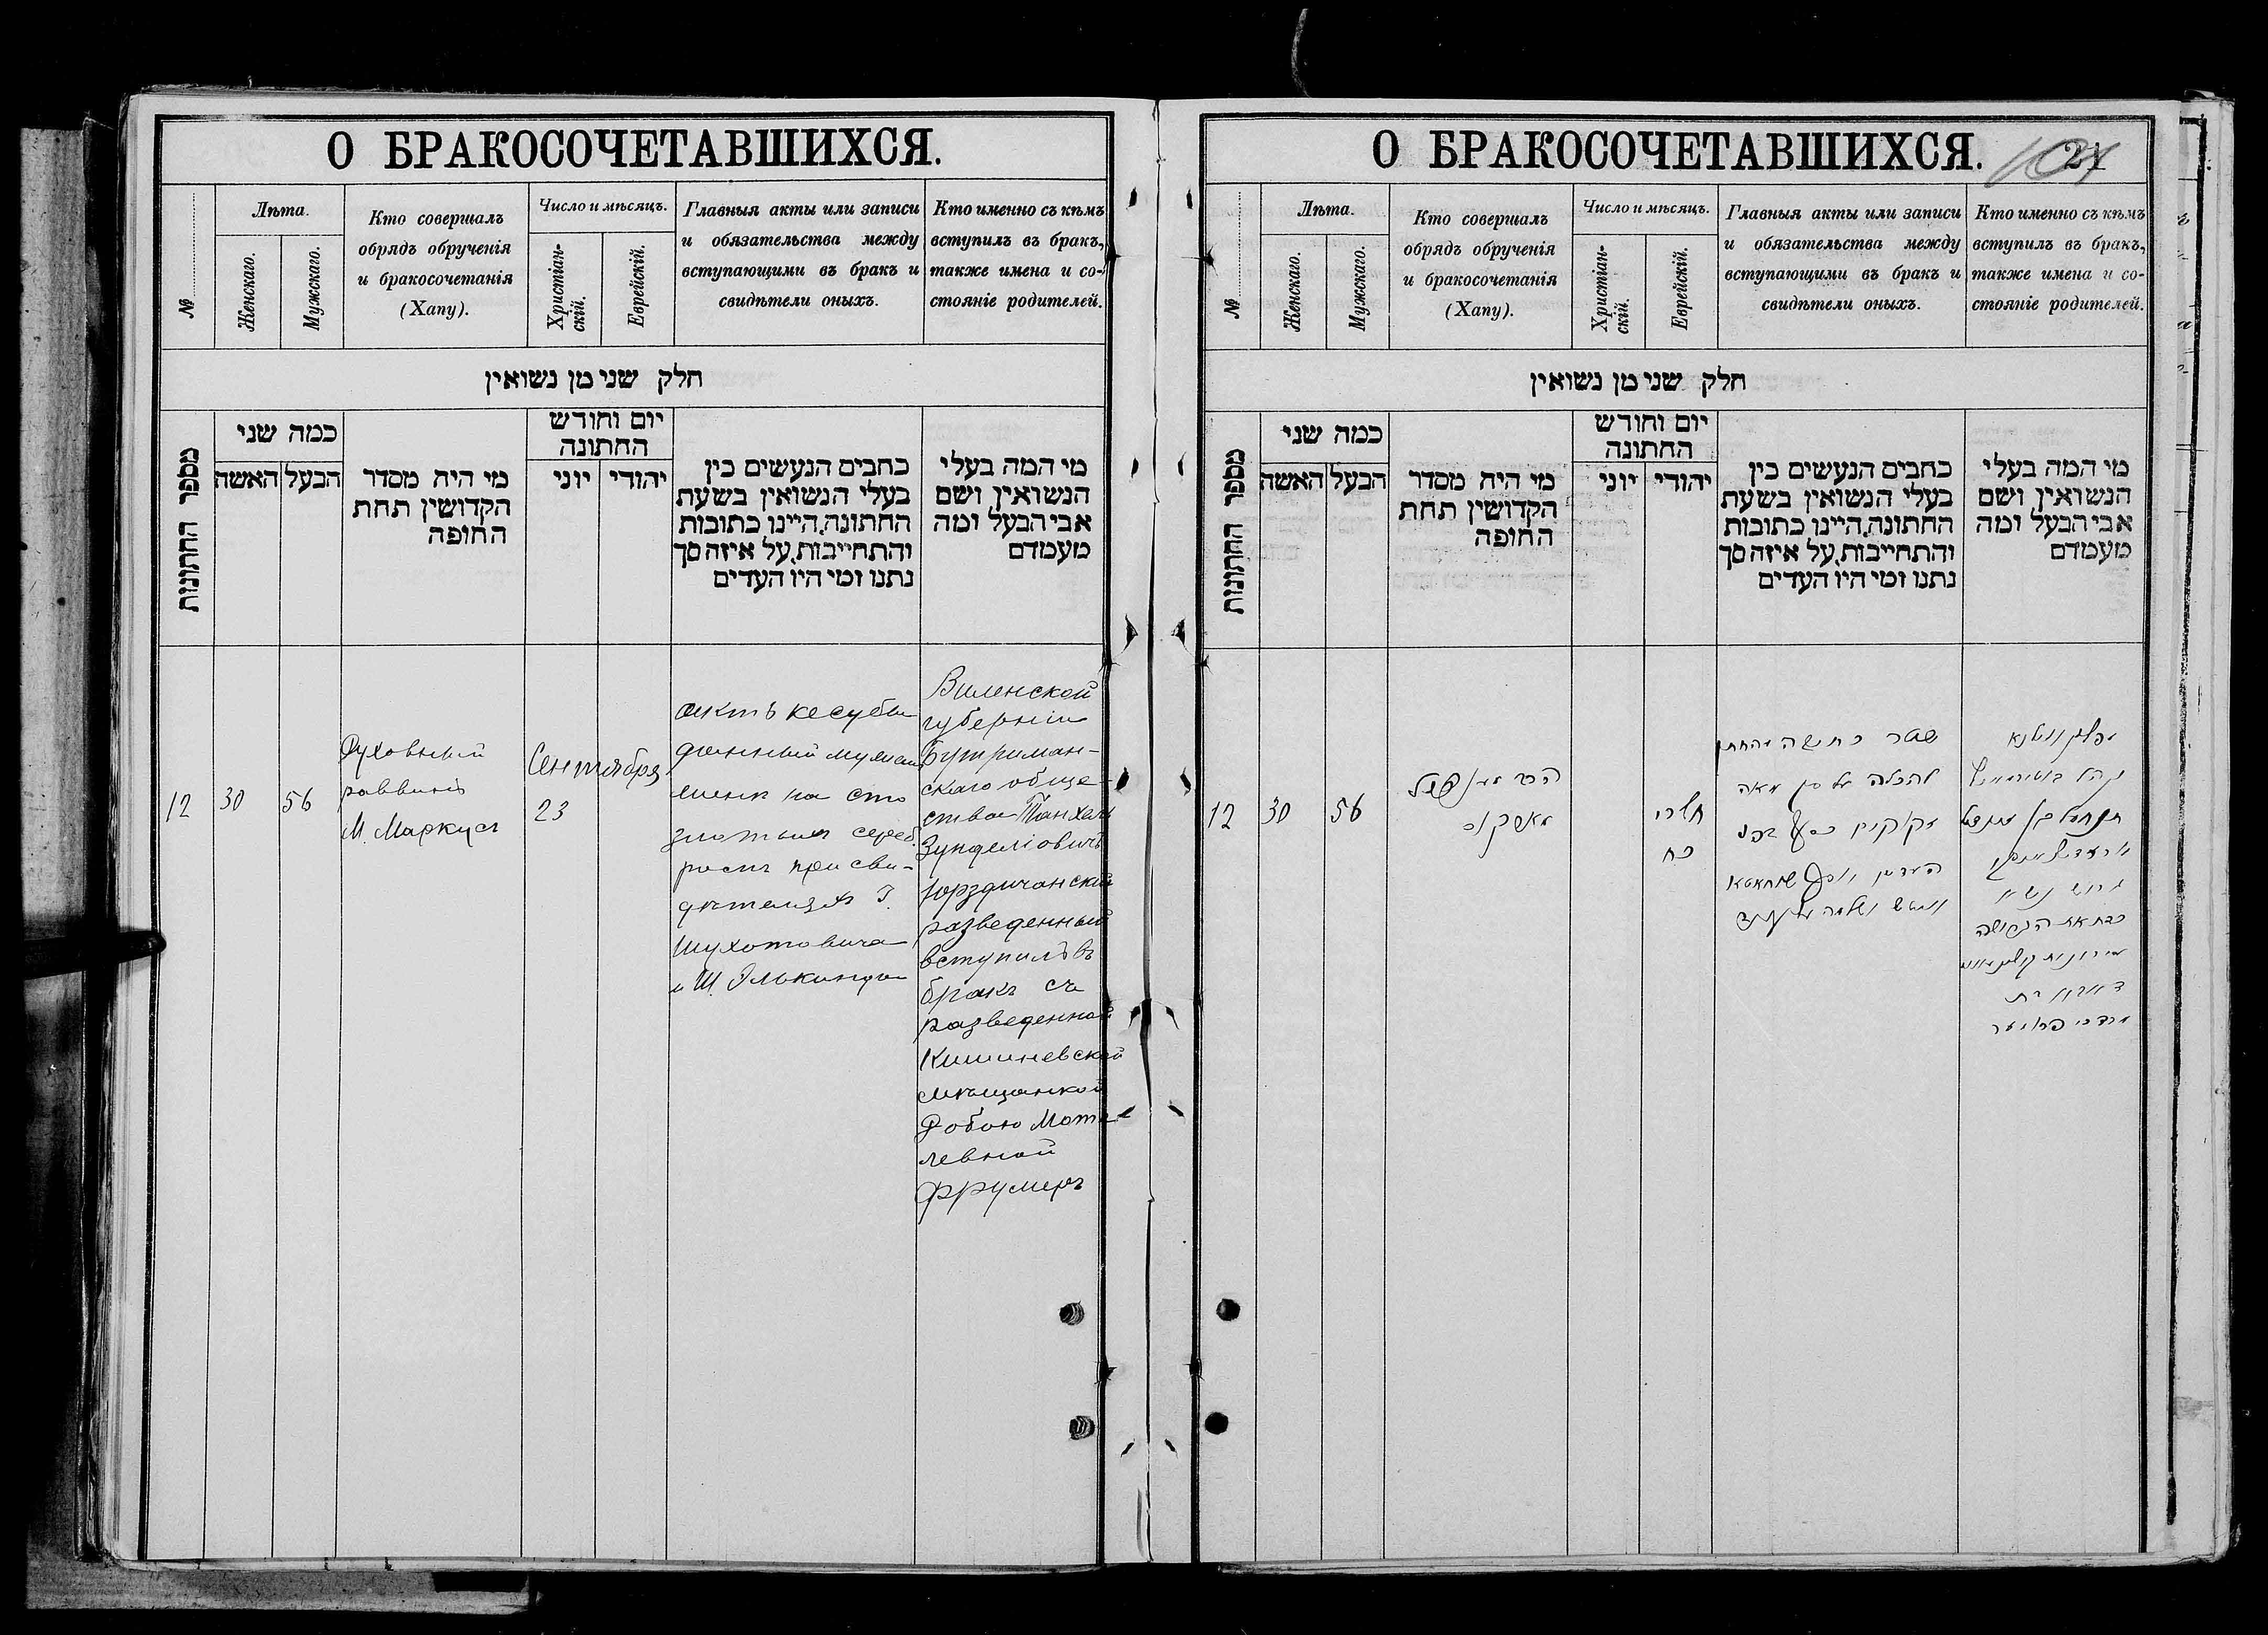 О БРАКОСОЧЕТАВШИХСЯ.
№
Лѣта.
Женскаго.
Мужскаго.
Кто совершалъ
обрядъ обрученія
и бракосочетанія
(Хапу).
Число и мѣсяцъ.
Христіан-
скій.
Еврейскій.
Главныя акты или записи
и обязательства между
вступающими въ бракъ и
свидѣтели оныхъ.
Кто именно съ кѣмъ
вступилъ въ бракъ,
также имена и со-
стояніе родителей.
חלק שני מן נשואין
מספר החתונות
כמה שני
האשה
הבעל
מי היה מסדר
הקדושין תחת
החופה
יום וחודש
החתונה
יוני
יהודי
כתבים הנעשים בין
בעלי הנשואין בשעת
החתונה, היינו כתובות
והתחייבות, על איזה סך
נתנו ומי היו העדים
מי המה בעלי
הנשואין ושם
אבי הבעל ומה
מעמדם
12
30
56
Духовный
раввинъ
М. Маркусъ
Сентября
23
актъ кесубы
данный мужемъ
женѣ на сто
злотыхъ сереб.
ромъ при сви-
дѣтеляхъ
Шухотовича
и Ш. Элькинда
Виленской
губерніи
Бутриман-
скаго обще-
ства Танхель
Зунделіовичъ
Юрздичанскій
разведенный
вступилъ въ
бракъ съ
разведенной
Кишиневской
мѣщанкой
Добою Мот-
левной
Фрумеръ
О БРАКОСОЧЕТАВШИХСЯ.
21
№
Лѣта.
Женскаго.
Мужскаго.
Кто совершалъ
обрядъ обрученія
и бракосочетанія
(Хапу).
Число и мѣсяцъ.
Христіан-
скій.
Еврейскій.
Главныя акты или записи
и обязательства между
вступающими въ бракъ и
свидѣтели оныхъ.
Кто именно съ кѣмъ
вступилъ въ бракъ,
также имена и со-
стояніе родителей.
חלק שני מן נשואין
מספר החתונות
כמה שני
האשה
הבעל
מי היה מסדר
הקדושין תחת
החופה
יום וחודש
החתונה
יוני
יהודי
כתבים הנעשים בין
בעלי הנשואין בשעת
החתונה, היינו כתובות
והתחייבות, על איזה סך
נתנו ומי היו העדים
מי המה בעלי
הנשואין ושם
אבי הבעל ומה
מעמדם
12
30
56
הרב
מארקוס
תשרי
כח
שטר כתובה מהחתן
להכלה על סך מאה
זקוקים כסף בפני
העדים
ווילנא
קהל
בת
מרדכי